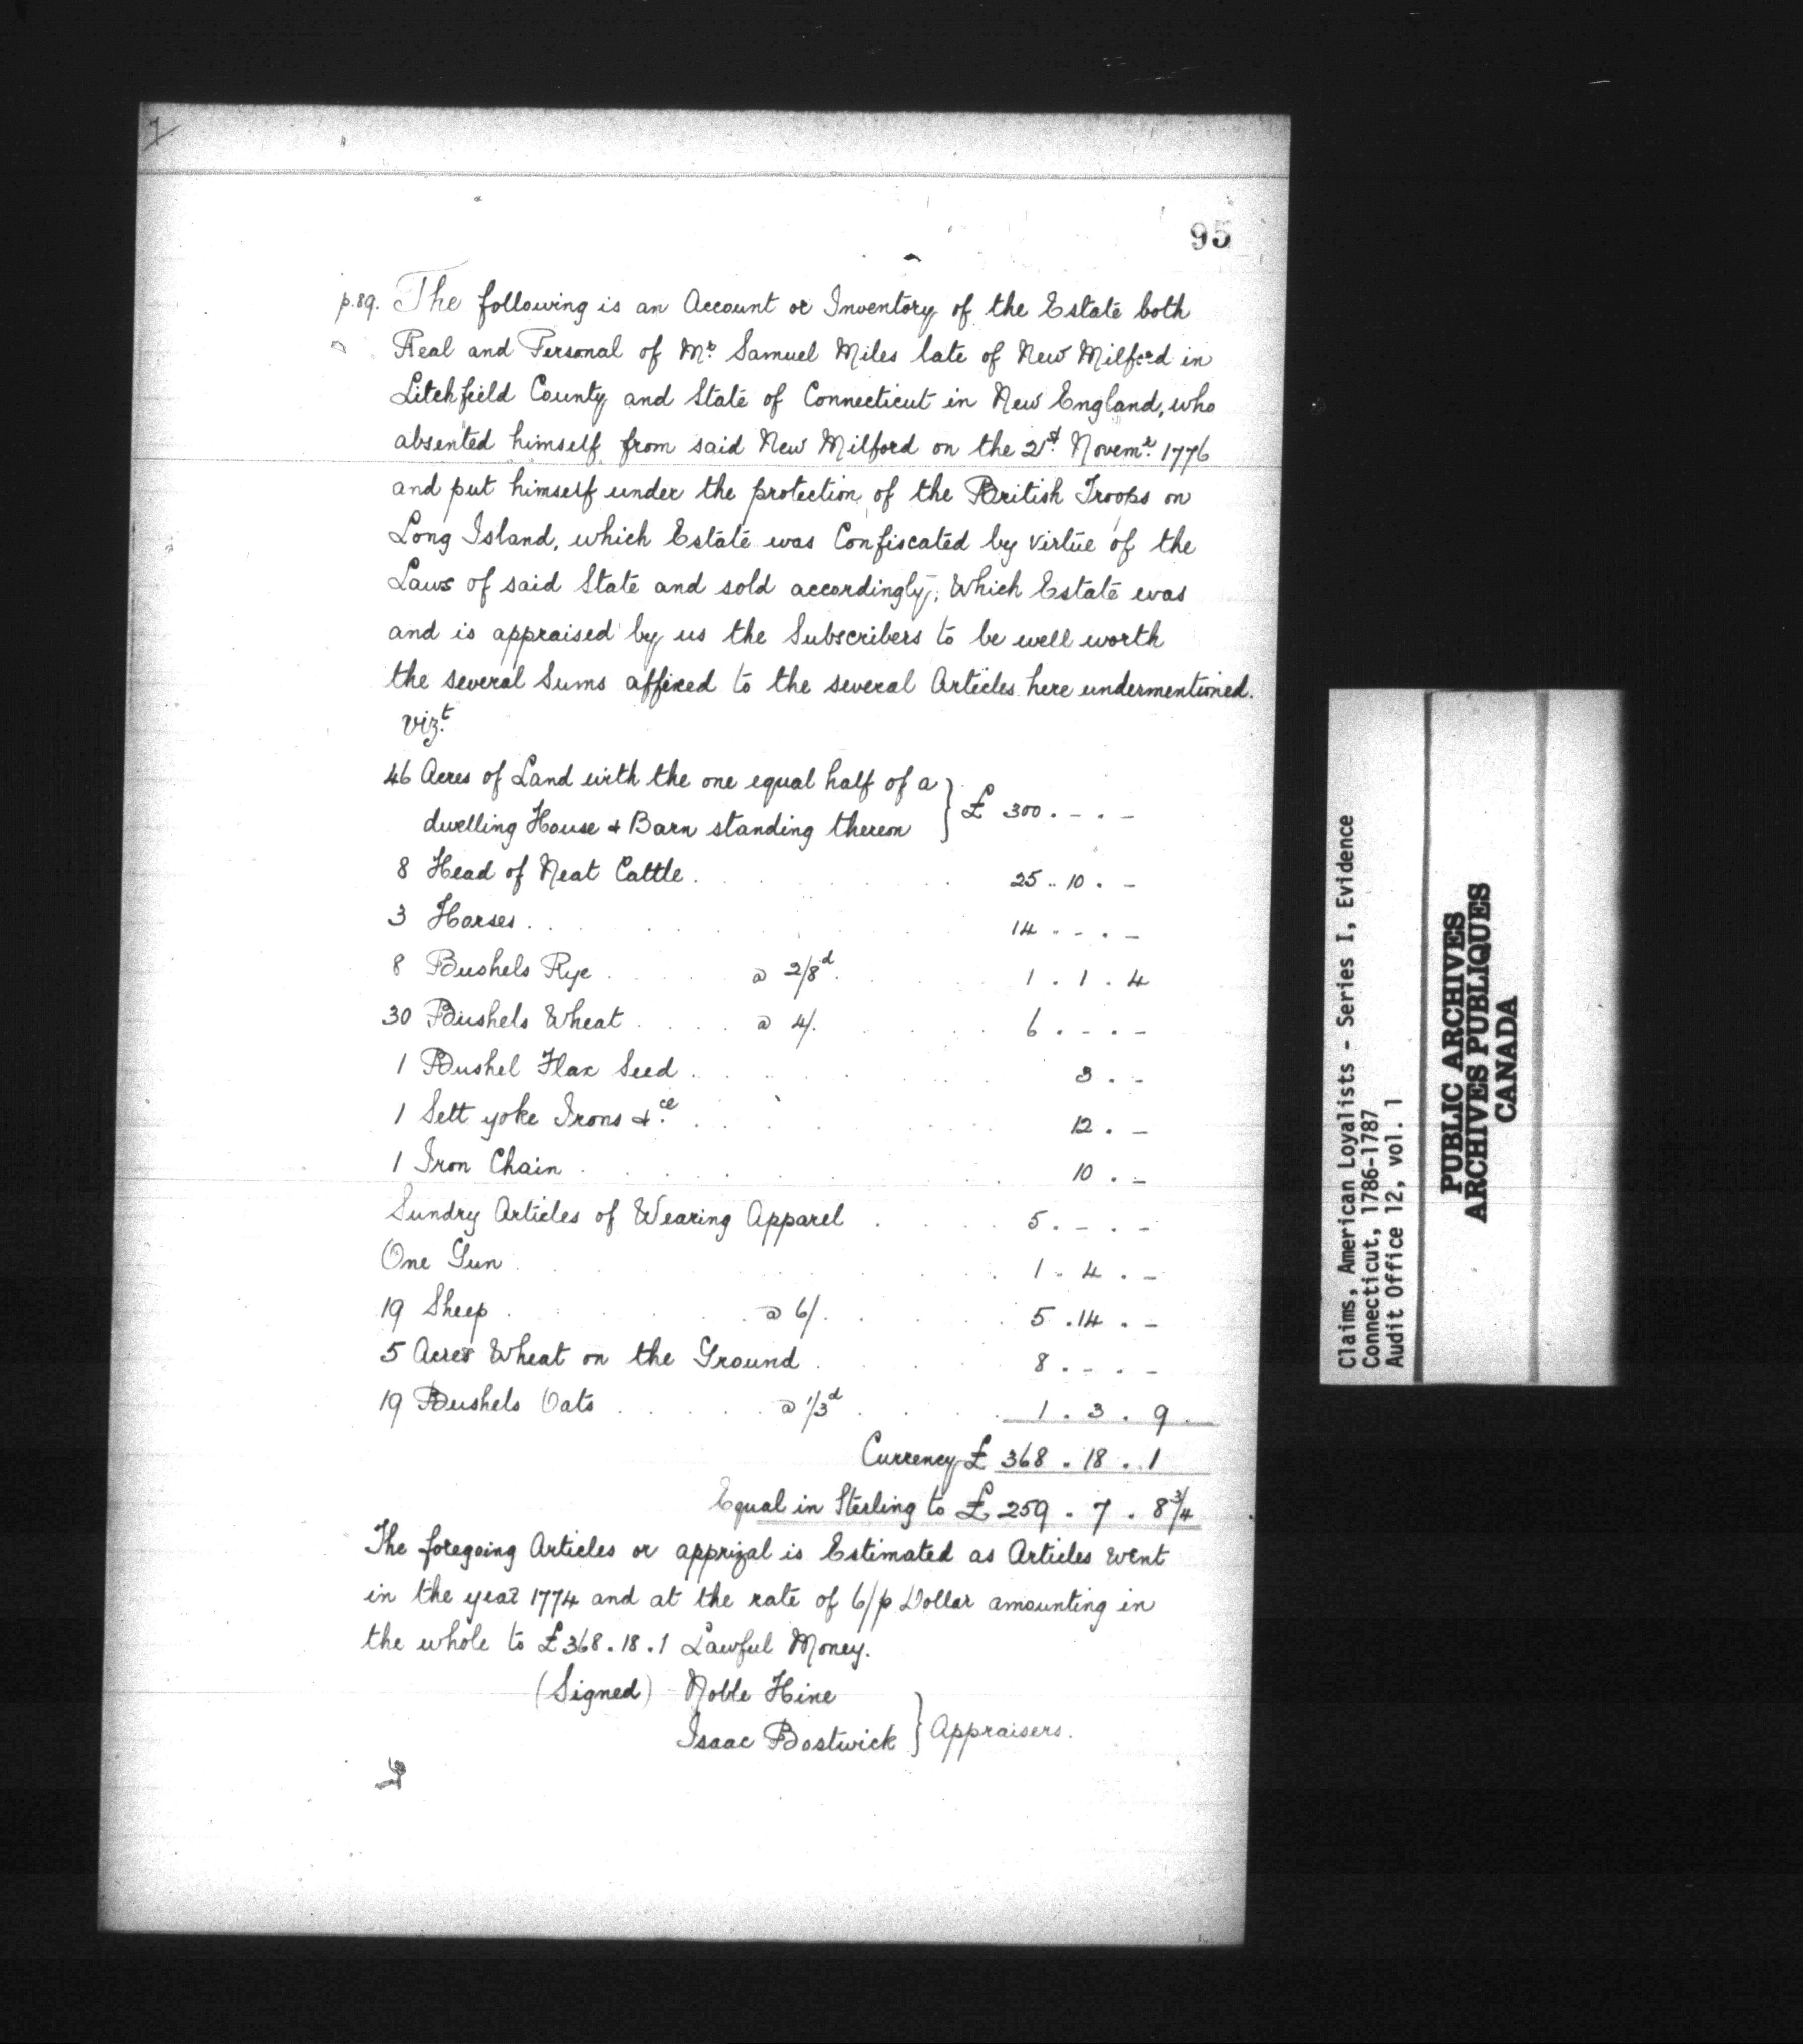 95
p.89. The following is an Account or Inventory of the Estate both
Real and Personal of Mr. Samuel Miles late of New Milford in
Litchfield County and State of Connecticut in New England, who
absented himself from said New Milford on the 21st. Novemr. 1776
and put himself under the protection of the British Troops on
Long Island, which Estate was Confiscated by virtue of the
Laws of said State and sold accordingly; Which Estate was
and is appraised by us the Subscribers to be well worth
the several Sums affixed to the several Articles here undermentioned.
vizt.
46 Acres of Land with the one equal half of a
dwelling House & Barn standing thereon } £ 300 . - . -
8 Head of Neat Cattle . . . . 25 .. 10 . -
3 Horses . . . . 14 . - . -
8 Bushels Rye . . . . @ 2/8d. . . . 1 . 1 . 4
30 Bushels Wheat . . . . @ 4/. . . . 6 . - . -
1 Bushel Flax Seed . . . . 3 . -
1 Sett yoke Irons &ce. . . . . 12 . -
1 Iron Chain . . . . 10 . -
Sundry Articles of Wearing Apparel . . . . 5 . - . -
One Gun . . . . 1 .. 4 . -
19 Sheep . . . . @ 6/. . . . 5 . 14 . -
5 Acres Wheat on the Ground . . . . 8 . - . -
19 Bushels Oats . . . . @ 1/3d . . . 1 . 3 . 9
Currency £ 368 . 18 . 1
Equal in Sterling to £ 259 . 7 . 8 3/4
The foregoing Articles or apprizal is Estimated as Articles went
in the year 1774 and at the rate of 6/p Dollar amounting in
the whole to £368.18.1 Lawful Money.
(Signed) Noble Hine
Isaac Bostwick } Appraisers.
Claims, American Loyalists - Series I, Evidence
Connecticut, 1786-1787
Audit Office 12, vol. 1
PUBLIC ARCHIVES
ARCHIVES PUBLIQUES
CANADA